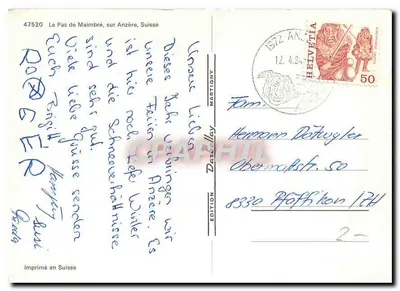 47520 Le Pas de Maimbré, sur Anzère, Suisse
Unsere Lieben
Dieses Jahr verbringen wir
unsere Ferien in Anzère. Es
ist hier noch tiefer Winter
und die Schneeverhältnisse
sind sehr gut.
Viele liebe Grüsse senden
Euch Brigitt
Susi
ROGER
Imprimé en Suisse
EDITION Darbellay MARTIGNY
1972 AN
12.4.84
HELVETIA
50
Fam.
Hermann
Obermattstr. 50
8330 Pfäffikon/ZH
2-